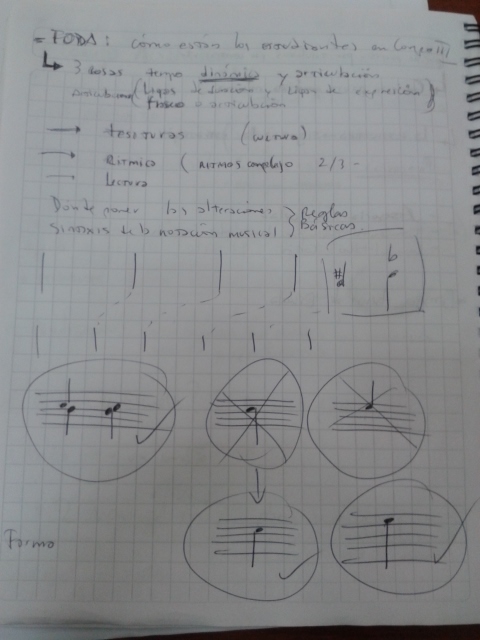 = FODA: cómo están los estudiantes en Compo III
3 cosas tempo dinámico y articulación
Articulación (Ligas de fusión y Ligas de expresión)
fraseo o articulación
→ tesituras
→ Ritmico (Ritmos complejo 2/3 -
Lectura
Dónde poner las alteraciones } Reglas
sintaxis de la notación musical } Básicas...
# b
Forma